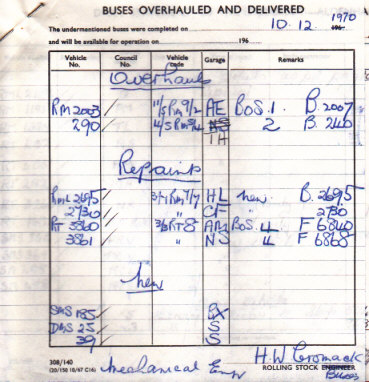 BUSES OVERHAULED AND DELIVERED
The undermentioned buses were completed on 10 12 1970 196
and will be available for operation on 196
Vehicle No. Council No. Vehicle code Garage Remarks
Overhauls
RM 2003 / AE BoS. 1. B. 2007
290 / 2 B. 240
TH
Repaints
RML 2695 / HL new B. 2695
2730 / " CF " 2730
RT 3860 / BoS 4 F 6840
3861 / " NS 4 F 6868
New
SMS 185 / BX
DMS 25 / S
39 / S
308/140
(20/150 10/67 C16)
Mechanical Eng
H.W Cromack
ROLLING STOCK ENGINEER
Buses